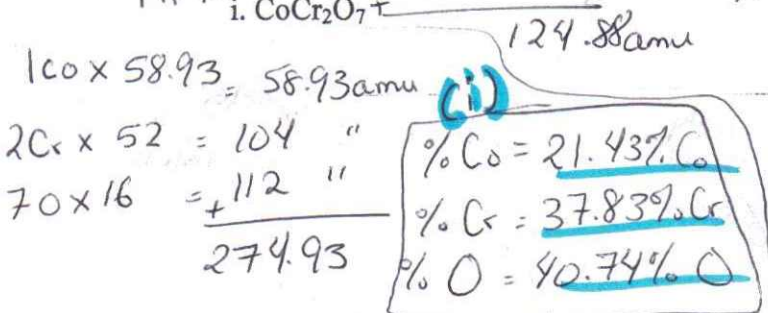 i. CoCr₂O₇
124.88amu
1Co x 58.93 = 58.93amu
(i)
2Cr x 52 = 104 "
7O x 16 = +112 "
274.93
% Co = 21.43% Co
% Cr = 37.83% Cr
% O = 40.74% O